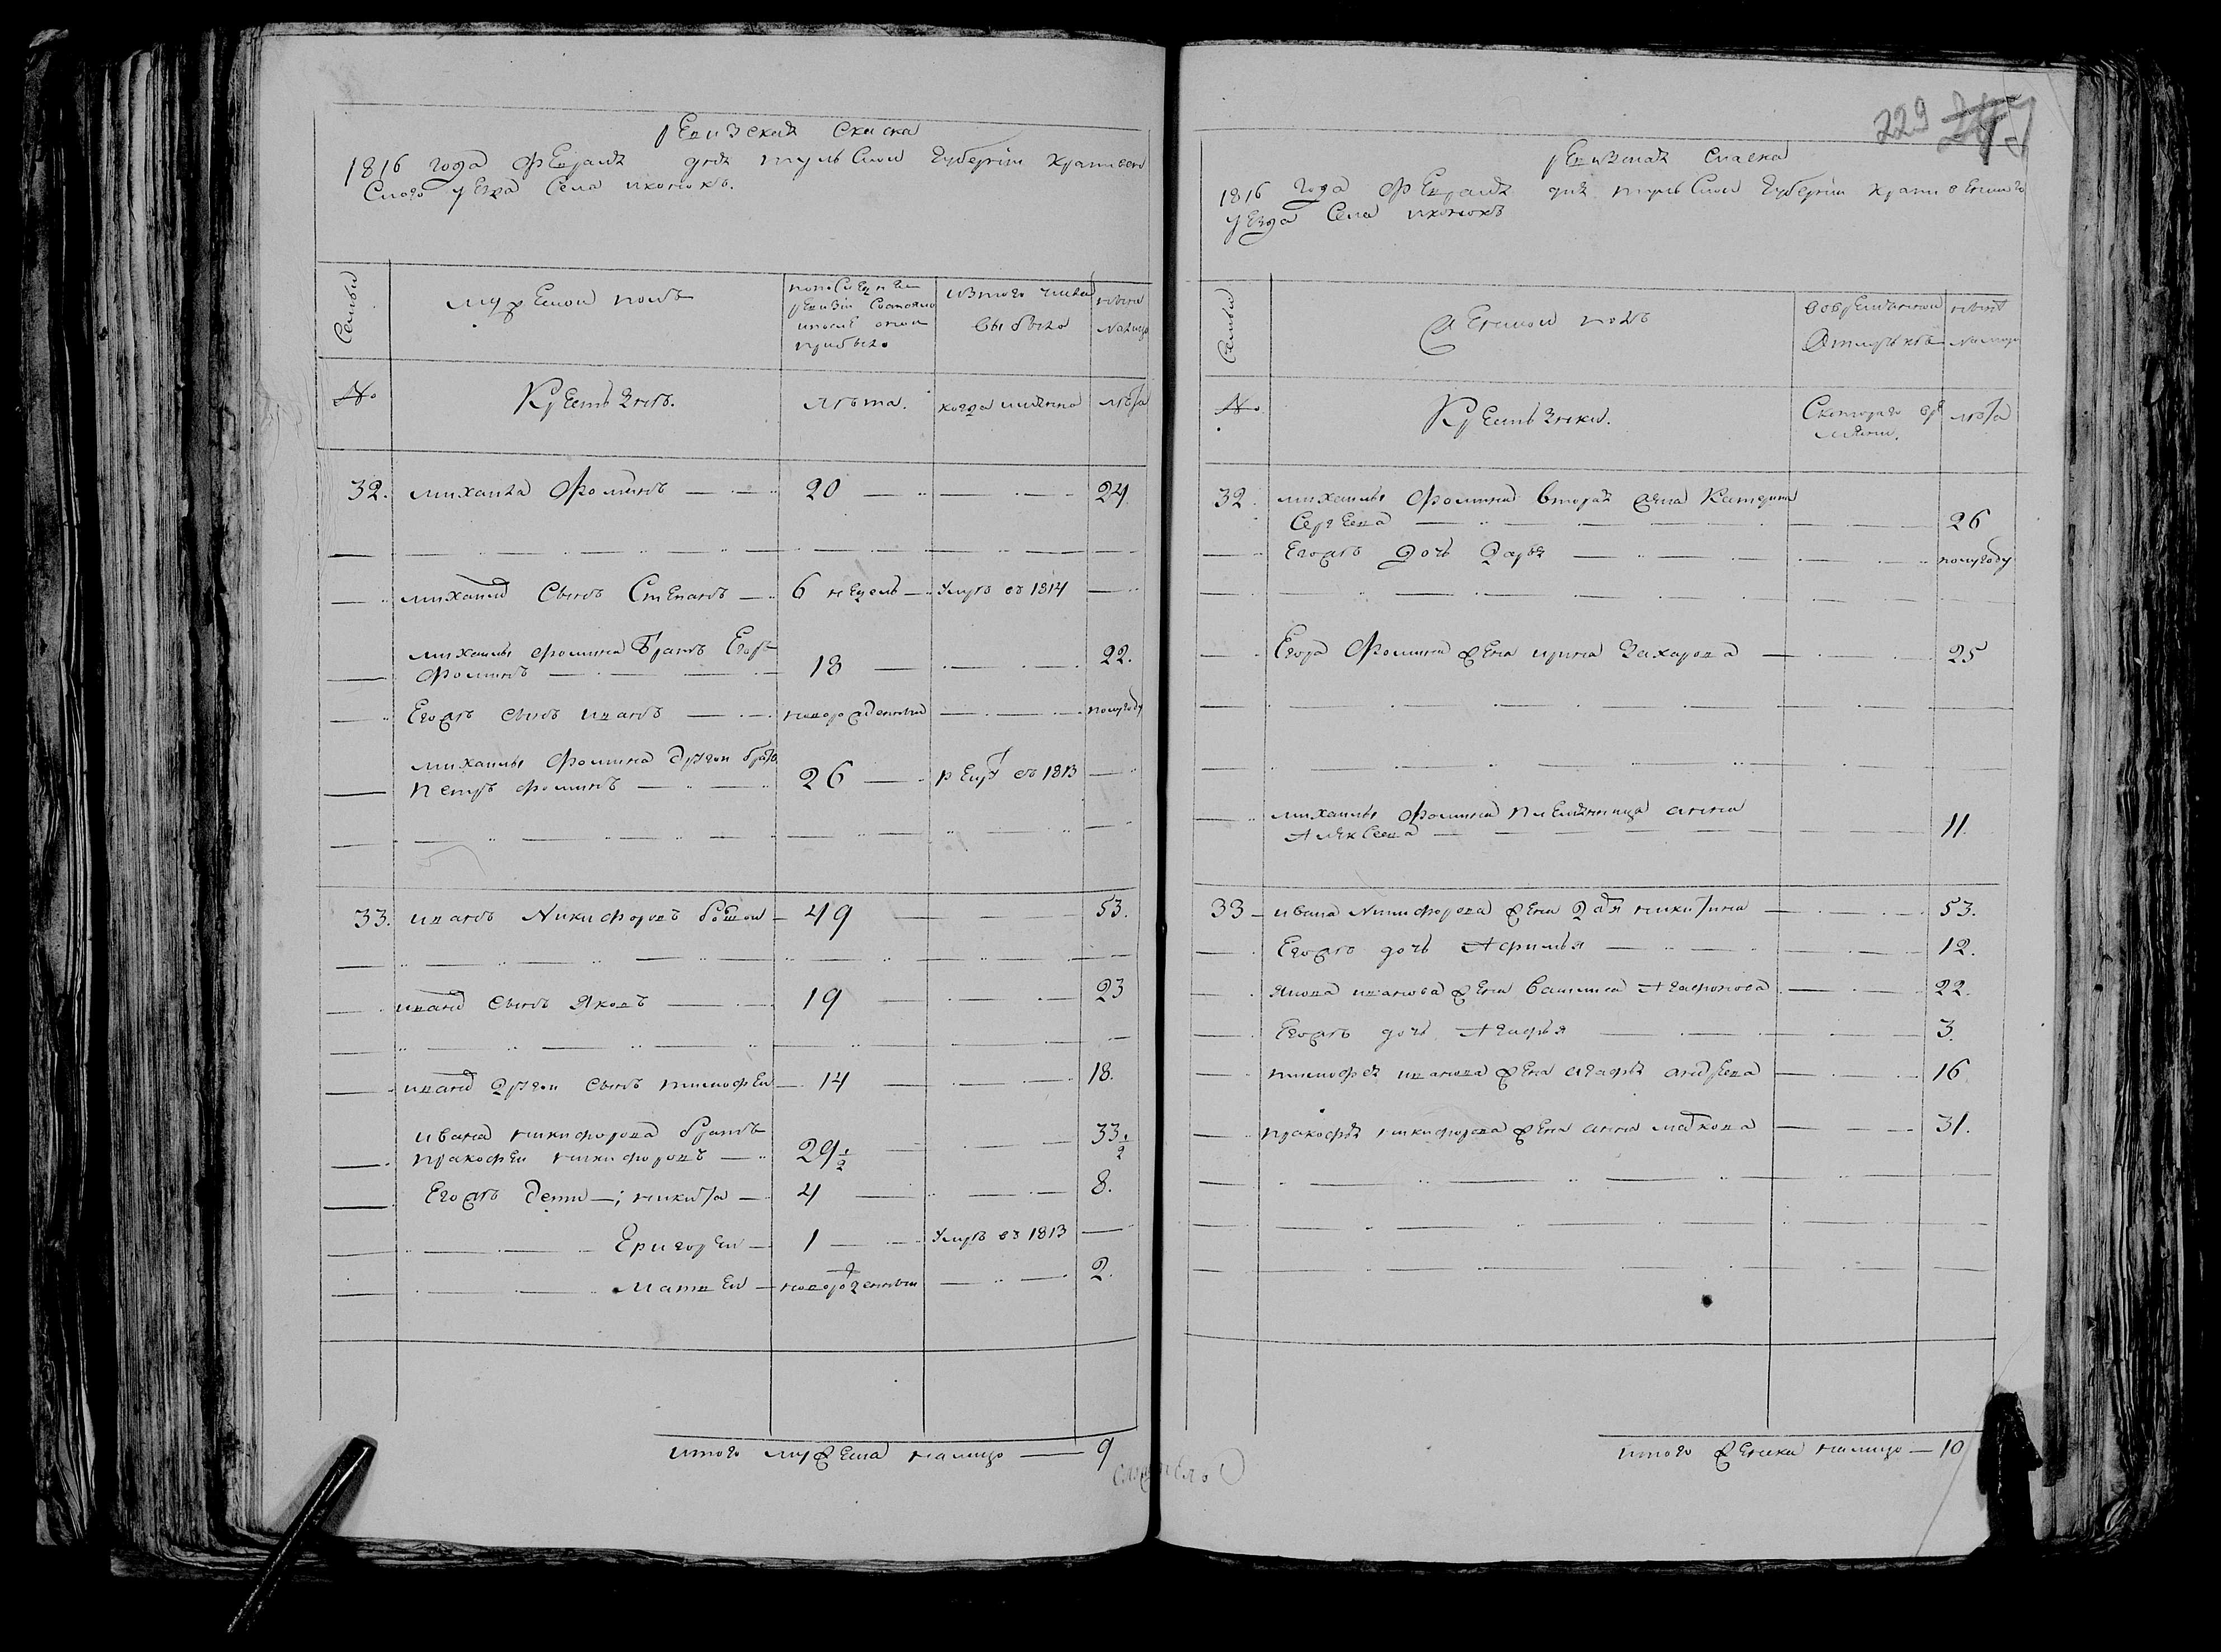 ревизская скаска
1816 года февраля дня тульскои губернiи крапивен
скаго уезда села иконокъ.
семьи
мужескои полъ
попоследнеи
ревизiи состояло
ипосле онои
прибыло
изтого числа
выбыло
ныне
налицо
№
Крестьянъ.
лѣта.
когда имянно
лѣта
32. михаила Фоминъ 20 24
михаила сынъ Степанъ 6 недель умръ въ 1814
михаилы фомина братъ Егоръ
фоминъ 18 22.
Егожъ сынъ иванъ новорожденныи полугоду
михаилы фомина другои братъ
петръ фоминъ 26 рекрутъ въ 1813
33. иванъ Никифоровъ болшои 49 53.
ивана сынъ Яковъ 19 23
ивана другои сынъ тимофеи 14 18.
ивана никифорова братъ
пракофеи никифоровъ 29 1/2 33 1/2
Егожъ дети; никита 4 8.
Григореи 1 умръ въ 1813
Матвеи новорожденныи 2.
итого мужеска налицо 9
229
ревизская скаска
1816 года февраля дня тульскои губернiи крапивенскаго
уезда села иконокъ
семьи
женскои полъ
вовременнои
отлучкѣ
ныне
налицо
№
Крестьянки.
Скотораго вре
мяни.
лѣта
32. михаилы фомина вторая жена Катерина
Сергеева 26
Егожъ дочь дарья полугоду
Егора Фомина жена ирина Захарова 25
михаилы фомина племянница анна
Алексеева 11.
33 ивана Никифорова жена никитина 53.
Егожъ дочь Афимья 12.
Якова иванова жена василиса Агафонова 22.
Егожъ дочь Агафья 3.
тимофея иванова жена агафья андреева 16
пракофья никифорова жена анна маркова 31.
итого женска налицо 10